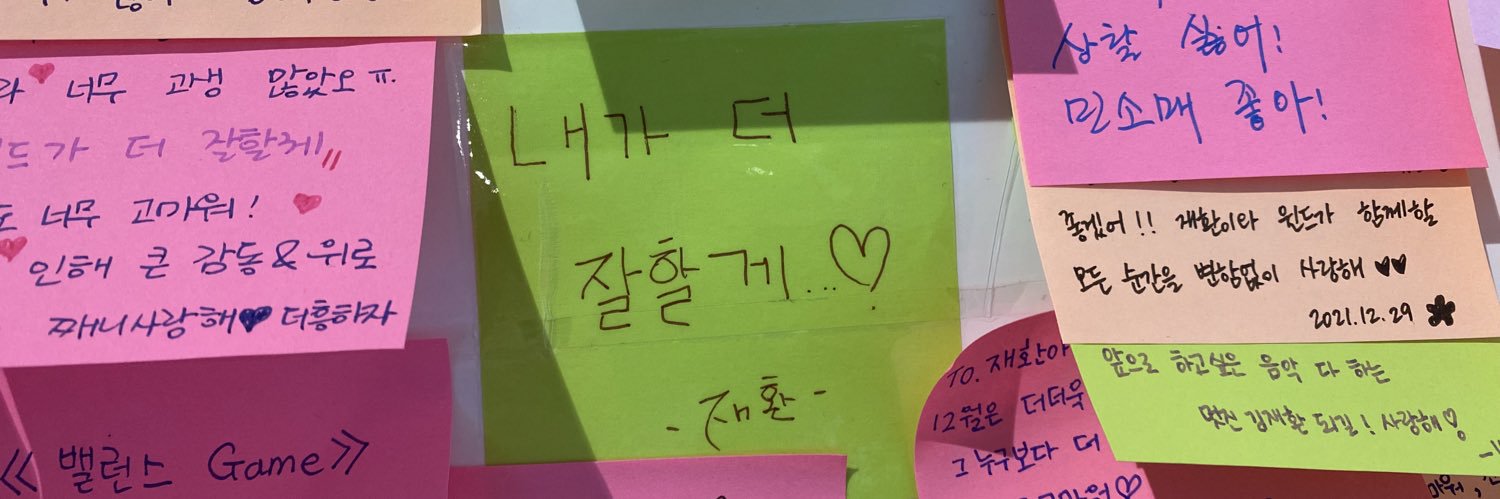 너무 고생 많았오ㅠ.
가 더 잘할게〃
너무 고마워!
인해 큰 감동&위로
째니사랑해♥ 더흥하자
《 밸런스 Game》
내가 더
잘할게...♡
-재환-
상탈 싫어!
민소매 좋아!
좋겠어!! 재환이랑 윈드가 함께할
모든 순간을 변함없이 사랑해♥♥
2021.12.29
TO. 재환아
12월은 더더욱
그 누구보다 더
앞으로 하고싶은 음악 다 하는
멋진 김재환 되길! 사랑해♡